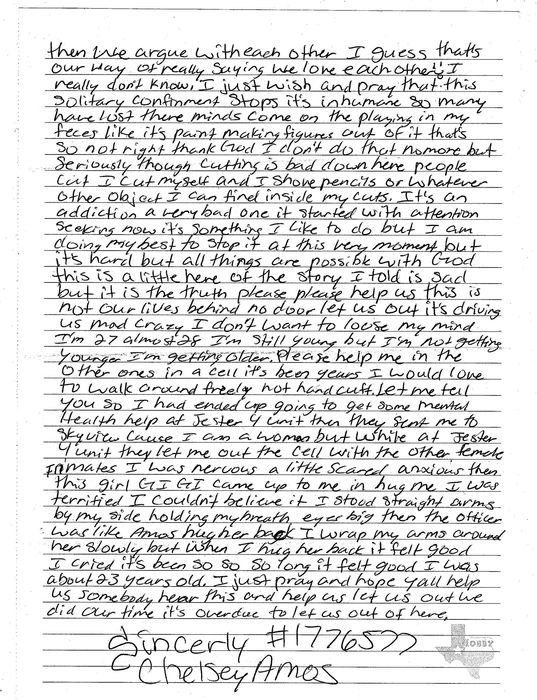 then We argue with each other I guess that's
our way of really saying we love each other I
really don't know, I just wish and pray that this
solitary confinment stops it's inhumane so many
have lost there minds come on the playing in my
feces like it's paint making figures out of it that's
so not right thank God I don't do that nomore but
Seriously though cutting is bad down here people
cut I cut myself and I shove pencils or whatever
other object I can find inside my cuts. It's an
addiction a very bad one it started with attention
seeking now it's something I like to do but I am
doing my best to stop it at this very moment but
it's hard but all things are possible with God
this is a little here of the story I told is sad
but it is the truth please please help us this is
not our lives behind no door let us out it's driving
us mad crazy I don't want to loose my mind
I'm 27 almost 28 I'm still young but I'm not getting
younger I'm getting older. Please help me in the
other ones in a cell it's been years I would love
to walk around freely not handcuff. Let me tell
you so I had ended up going to get some mental
Health help at Jester 4 unit then they sent me to
Skyview cause I am a women but while at Jester
4 unit they let me out the cell with the other female
inmates I was nervous a little scared anxious then
this girl GI GI came up to me in hug me I was
terrified I couldn't believe it I stood straight arms
by my side holding my breath eyes big then the officer
was like Amos hug her back I wrap my arms around
her slowly but when I hug her back it felt good
I cried it's been so so so long it felt good I was
about 23 years old. I just pray and hope yall help
us somebody hear this and help us let us out we
did our time it's overdue to let us out of here.
Sincerly #1776577
Chelsey Amos
LOBBY